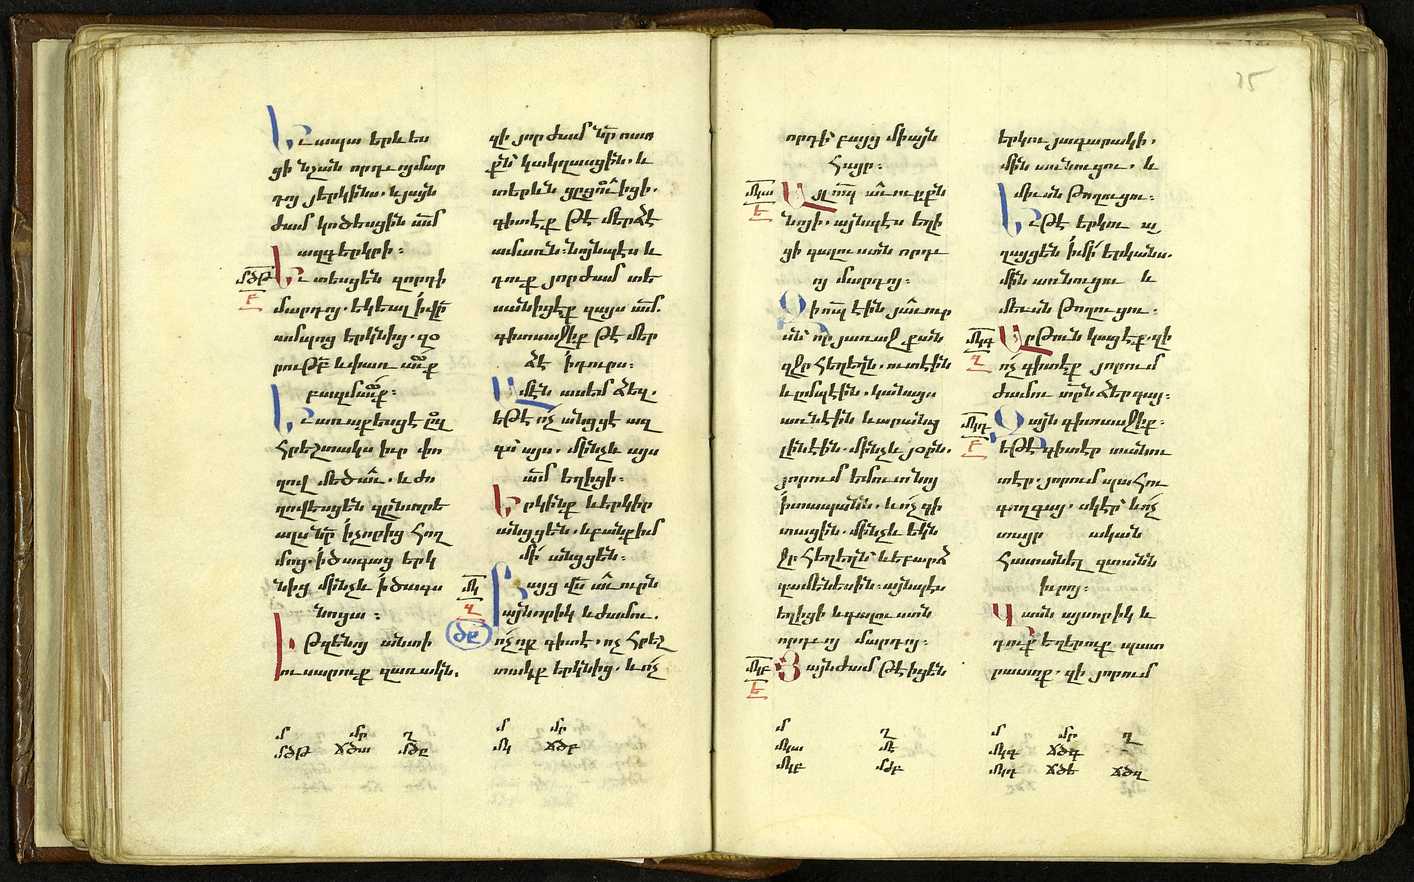 Եւ ապա երևես
ցի նշան որդւոյ մար
դոյ յերկինս. և յայն
ժամ կոծեսցին ամ
ազգ երկրի։
մծթ
բ
Եւ տեսցեն զորդի
մարդոյ. եկեալ ի վր
ամպոց երկնից. զօ
րութբ և փառաւք
բազմաւք։
Եւ առաքեսցէ
հրեշտակս իւր փո
ղով մեծաւ. և ժո
ղովեսցեն զընտրե
ալս նր ի չորից հող
մոց. ի ծագաց երկ
նից մինչև ի ծագս
նոցա։
Ի թզենւոյ անտի
ուսարուք զառակն.
մ մր ղ
մծթ ճծա մծը
զի յորժամ նր ոստ
քն կակղասցին. և
տերևն ցցուիցի.
գիտէք թէ մերձ է
ամառն։ նոյնպէս և
դուք յորժամ տե
սանիցէք զայս ամ.
գիտասջիք թէ մեր
ձ է ի դուրս։
Ամէն ասեմ ձեզ.
եթէ ոչ անցցէ ազ
գս այս. մինչև այս
ամ եղիցի։
Երկինք և երկիր
անցցեն. և բանք իմ
մի անցցեն։
մկ
զ
ծը
Բայց վս աւուրն
այնորիկ և ժամու.
ոչ ոք գիտէ. ոչ հրեշ
տակք երկնից. և ոչ
մ մր
մկ ճծբ
25
որդի՝ բայց միայն
հայր։
մկա
ե
Այլ որպ աւուրքն
նոյի. այնպէս եղի
ցի գալուստն որդւ
ոյ մարդոյ։
Զի որպ էին յաւուր
սն որ յառաջ քան
զջր հեղեղն. ուտէին
և ըմպէին. կանայս
առնէին և արանց
լինէին. մինչև յօրն.
յորում եմուտ նոյ
ի տապանն. և ոչ գի
տացին. մինչև եկն
ջր հեղեղն՝ և եբարձ
զամենեսին. այնպէս
եղիցի և գալուստն
որդւոյ մարդոյ։
մկբ
ե
Յայնժամ թէ իցեն
մ ղ
մկա մէ
մկբ մժբ
երկու յագարակի.
մին առնուցու. և
միւսն թողուցու։
Եւ թէ երկու ա
ղայցեն ի մի երկանս.
մին առնուցու և
միւսն թողուցու։
մկգ
զ
Արթուն կացէք. զի
ոչ գիտէք յորում
ժամու տրն ձեր գայ։
մկդ
բ
Զայն գիտասջիք.
եթէ գիտէր տանու
տէր. յորում պահու
գողն գայ. սկէր՝ և ոչ
տայր ական
հատանել զտանն
իւրոյ։
Վասն այսորիկ և
դուք եղերուք պատ
րաստք. զի յորում
մ մր ղ
մկգ ճծդ
մկդ ճծե ճծզ